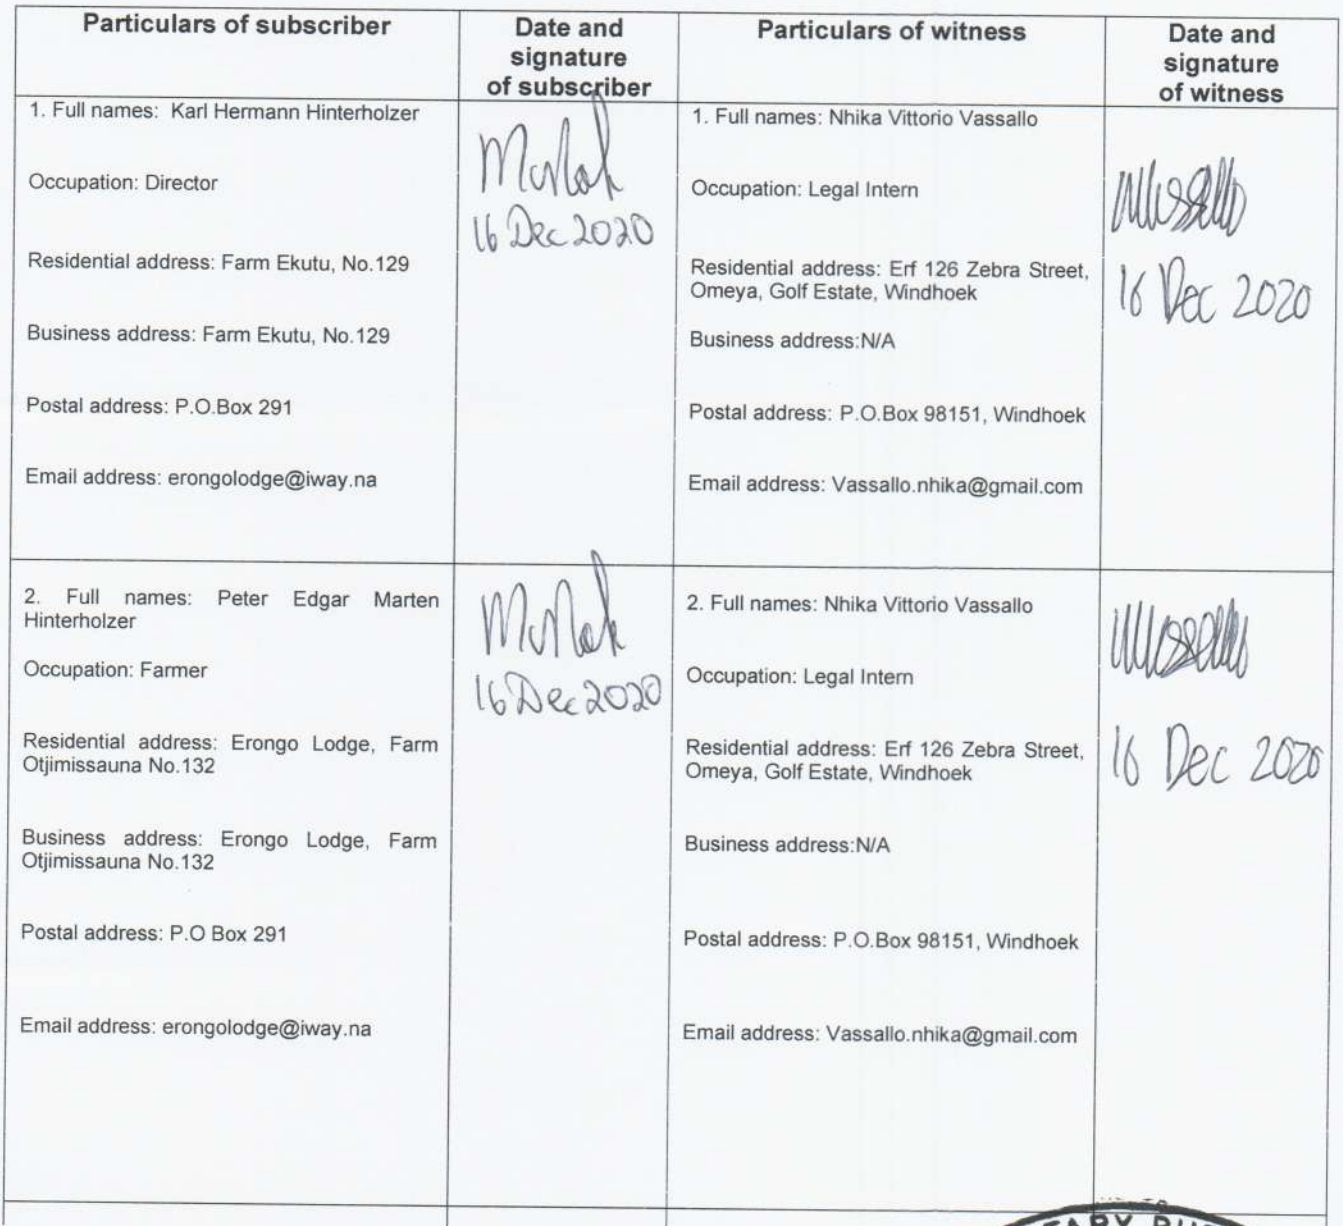 Particulars of subscriber
Date and
signature
of subscriber
Particulars of witness
Date and
signature
of witness
1. Full names: Karl Hermann Hinterholzer
Occupation: Director
Residential address: Farm Ekutu, No.129
Business address: Farm Ekutu, No.129
Postal address: P.O.Box 291
Email address: erongolodge@iway.na
16 Dec 2020
1. Full names: Nhika Vittorio Vassallo
Occupation: Legal Intern
Residential address: Erf 126 Zebra Street,
Omeya, Golf Estate, Windhoek
Business address:N/A
Postal address: P.O.Box 98151, Windhoek
Email address: Vassallo.nhika@gmail.com
16 Dec 2020
2. Full names: Peter Edgar Marten
Hinterholzer
Occupation: Farmer
Residential address: Erongo Lodge, Farm
Otjimissauna No.132
Business address: Erongo Lodge, Farm
Otjimissauna No.132
Postal address: P.O Box 291
Email address: erongolodge@iway.na
16 Dec 2020
2. Full names: Nhika Vittorio Vassallo
Occupation: Legal Intern
Residential address: Erf 126 Zebra Street,
Omeya, Golf Estate, Windhoek
Business address:N/A
Postal address: P.O.Box 98151, Windhoek
Email address: Vassallo.nhika@gmail.com
16 Dec 2020